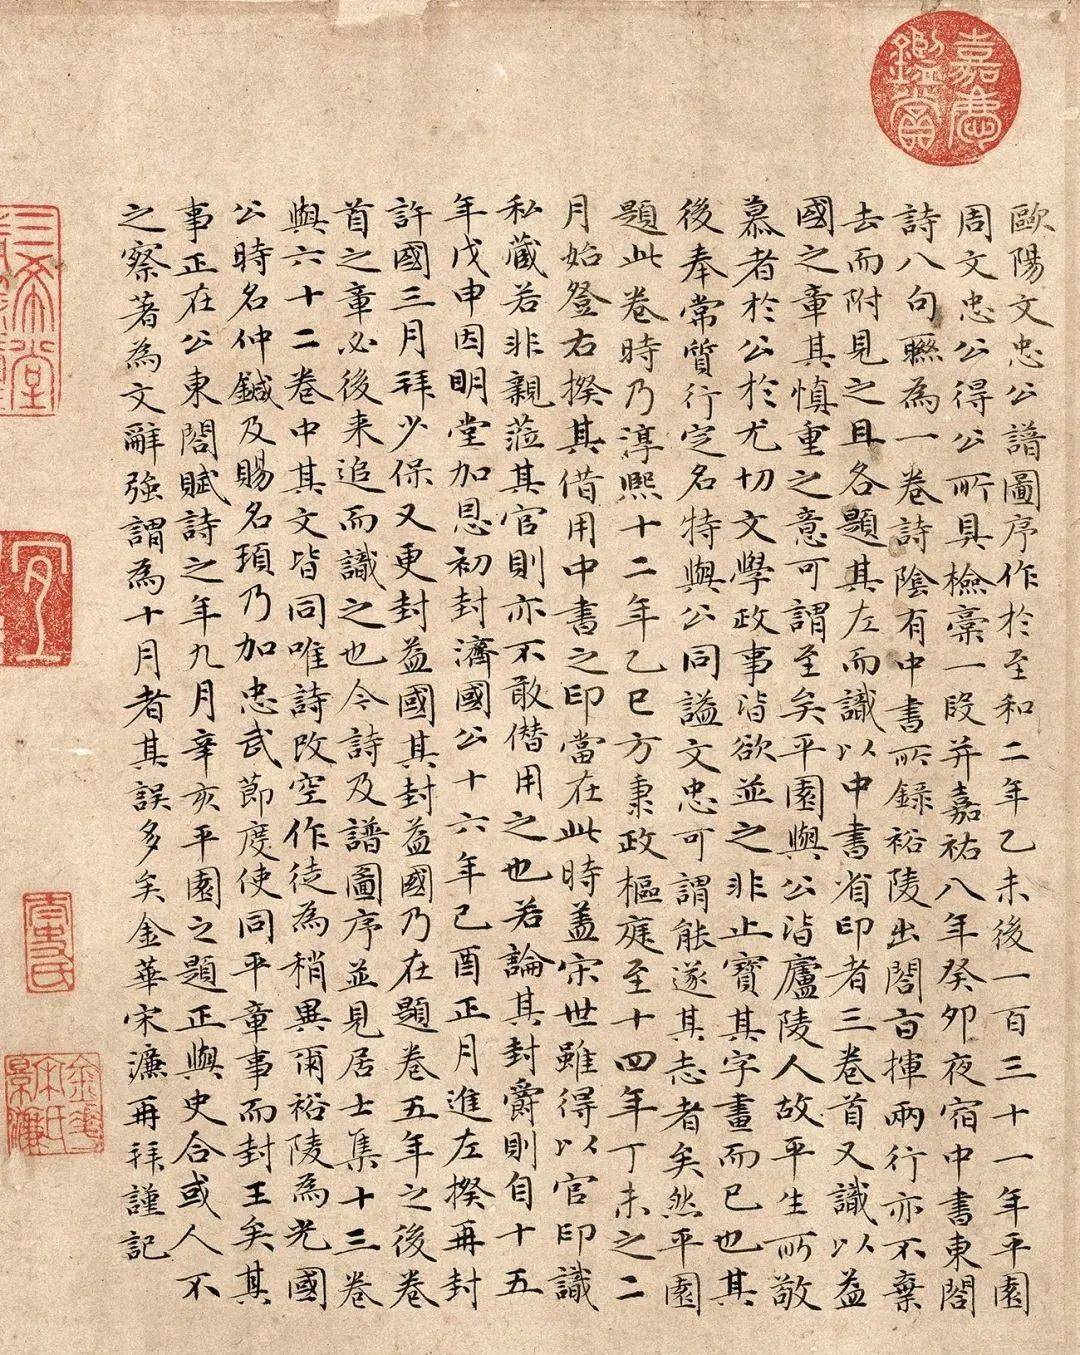 歐陽文忠公譜圖序作於至和二年乙未後一百三十一年平園
周文忠公得公所具檢稾一段并嘉祐八年癸卯夜宿中書東閤
詩八句聮為一卷詩陰有中書所録裕陵出閤㫖揮兩行亦不棄
去而附見之且各題其左而識以中書省印者三卷首又識以益
國之章其慎重之意可謂至矣平園與公皆廬陵人故平生所敬
慕者於公於尤切文學政事皆欲並之非止寶其字畫而已也其
後奉常質行定名特與公同謚文忠可謂能遂其志者矣然平園
題此卷時乃淳熙十二年乙巳方秉政樞庭至十四年丁未之二
月始登右揆其借用中書之印當在此時蓋宋世雖得以官印識
私藏若非親蒞其官則亦不敢僭用之也若論其封爵則自十五
年戊申因明堂加恩初封濟國公十六年己酉正月進左揆再封
許國三月拜少保又更封益國其封益國乃在題卷五年之後卷
首之章必後來追而識之也今詩及譜圖序並見居士集十三卷
與六十二卷中其文皆同唯詩改空作徒為稍異爾裕陵為光國
公時名仲鍼及賜名頊乃加忠武節度使同平章事而封王矣其
事正在公東閤賦詩之年九月辛亥平園之題正與史合或人不
之察著為文辭強謂為十月者其誤多矣金華宋濂再拜謹記
嘉慶鑑賞
三希堂
宜
金華宋氏景濂